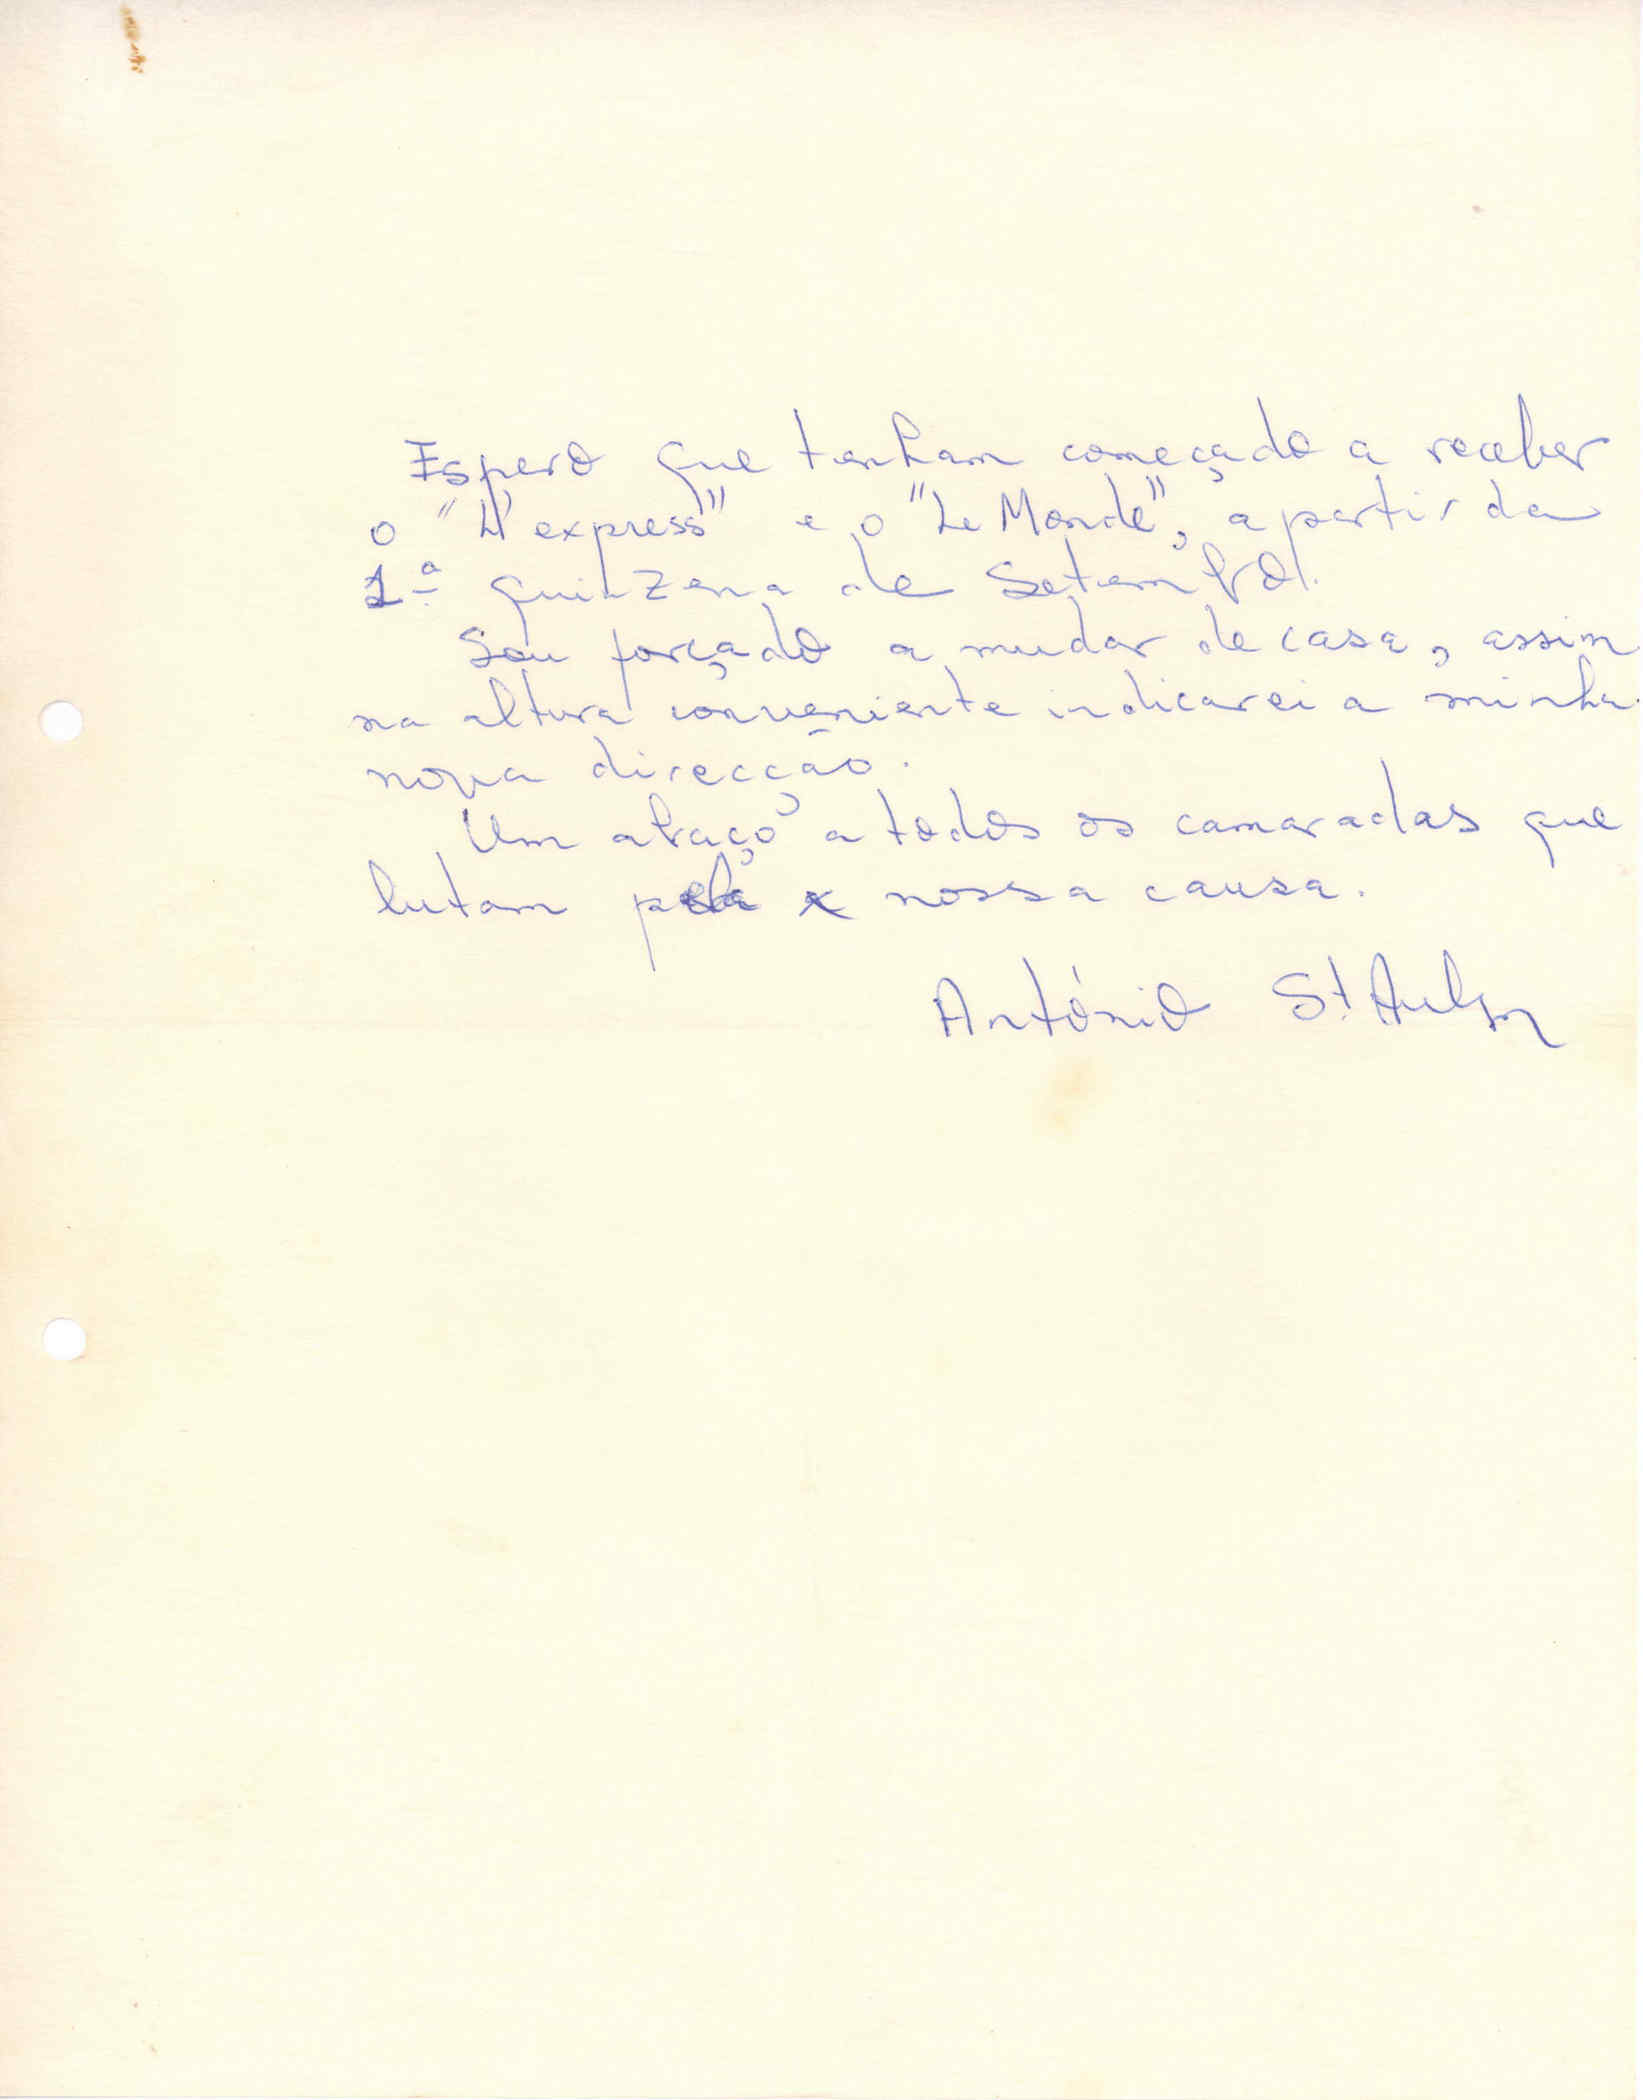 Espero que tenham começado a receber
o "L'express" e o "Le Monde", a partir da
1ª quinzena de Setembro.
Sou forçado a mudar de casa, assim
na altura conveniente indicarei a minha
nova direcção.
Um abraço a todos os camaradas que
lutam pela nossa causa.
António St.